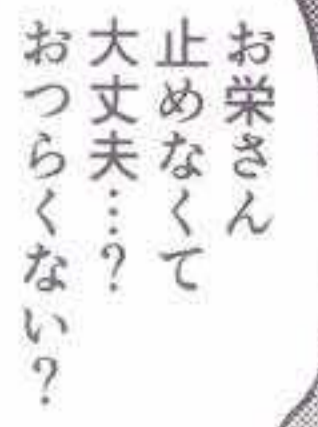 お栄さん
止めなくて
大丈夫…?
おつらくない?